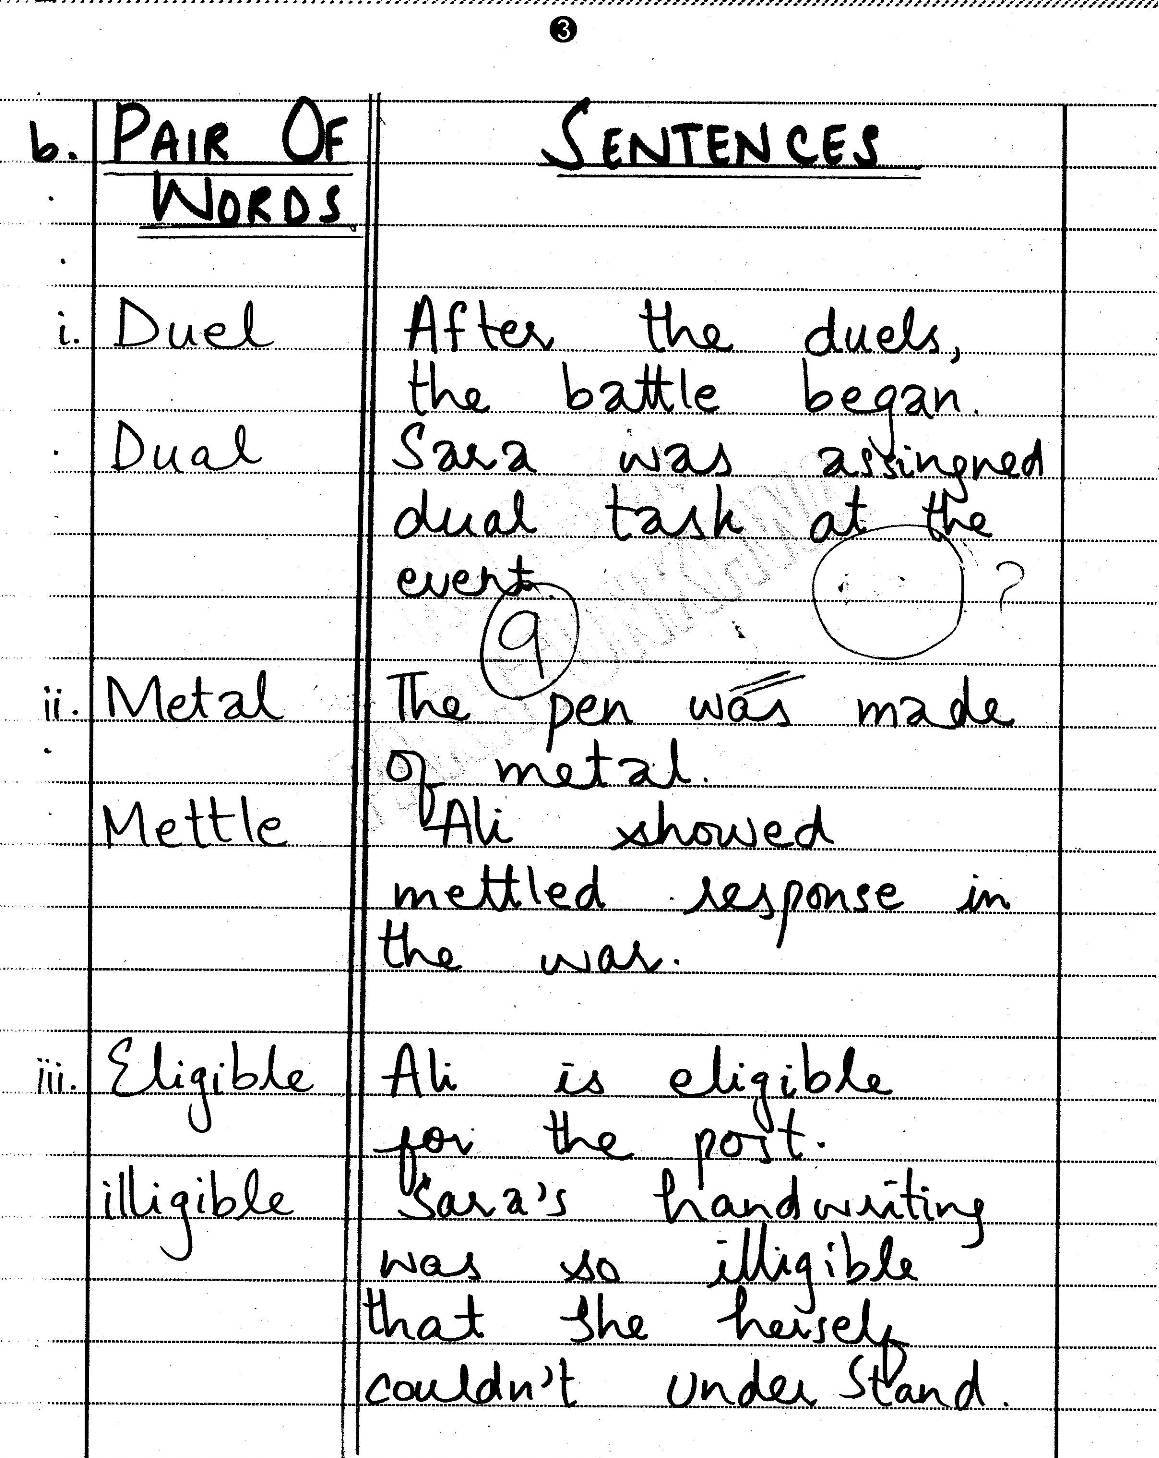 3
b. PAIR OF WORDS SENTENCES
i. Duel After the duels,
the battle began.
Dual Sara was assingned
dual task at the
event. ?
9
ii. Metal The pen was made
of metal.
Mettle Ali showed
mettled response in
the war.
iii. Eligible Ali is eligible
for the post.
illigible Sara's handwriting
was so illigible
that she herself
couldn't understand.